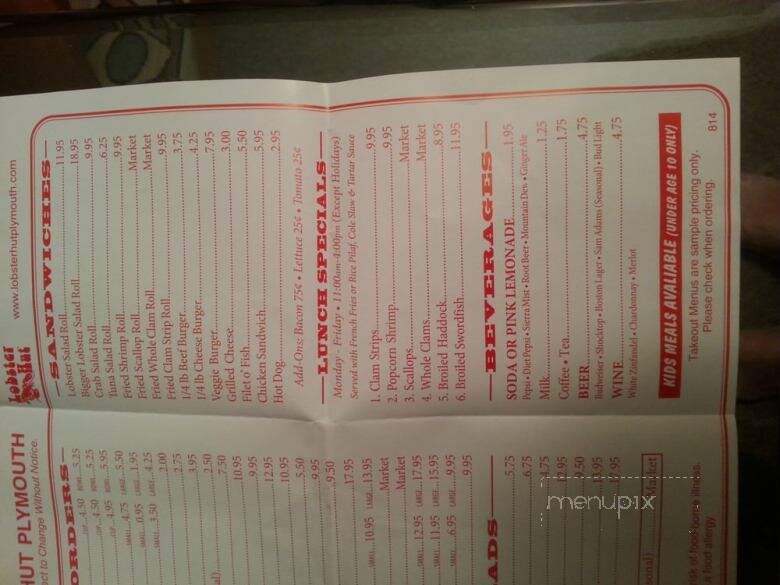 HUT PLYMOUTH
ct to Change Without Notice.
ORDERS
CUP...4.50 BOWL...5.25
CUP...4.50 BOWL...5.25
CUP...4.95 BOWL...5.95
SMALL...4.75 LARGE...5.50
SMALL...0.95 LARGE...1.95
SMALL...3.50 LARGE...4.25
2.00
2.75
3.95
2.50
7.50
10.95
9.95
12.95
10.95
5.50
9.95
9.50
17.95
SMALL...10.95 LARGE...13.95
Market
Market
SMALL...12.95 LARGE...17.95
SMALL...11.95 LARGE...15.95
SMALL...6.95 LARGE...9.95
9.95
ADS
5.75
6.75
4.75
Market
k of food borne illness.
food allergy
Lobster Hut
www.lobsterhutplymouth.com
SANDWICHES
Lobster Salad Roll 11.95
Bigger Lobster Salad Roll 18.95
Crab Salad Roll 9.95
Tuna Salad Roll 6.25
Fried Shrimp Roll 9.95
Fried Scallop Roll Market
Fried Whole Clam Roll Market
Fried Clam Strip Roll 9.95
1/4 lb Beef Burger 3.75
1/4 lb Cheese Burger 4.25
Veggie Burger 7.95
Grilled Cheese 3.00
Filet o' Fish 5.50
Chicken Sandwich 5.95
Hot Dog 2.95
Add-Ons: Bacon 75¢ • Lettuce 25¢ • Tomato 25¢
LUNCH SPECIALS
Monday - Friday • 11:00am-4:00pm (Except Holidays)
Served with French Fries or Rice Pilaf, Cole Slaw & Tartar Sauce
1. Clam Strips 9.95
2. Popcorn Shrimp 9.95
3. Scallops Market
4. Whole Clams Market
5. Broiled Haddock 8.95
6. Broiled Swordfish 11.95
BEVERAGES
SODA OR PINK LEMONADE 1.95
Pepsi • Diet Pepsi • Sierra Mist • Root Beer • Mountain Dew • Ginger Ale
Milk 1.25
Coffee • Tea 1.75
BEER 4.75
Budweiser • Shocktop • Boston Lager • Sam Adams (Seasonal) • Bud Light
WINE 4.75
White Zinfandel • Chardonnay • Merlot
KIDS MEALS AVALIABLE (UNDER AGE 10 ONLY)
Takeout Menus are sample pricing only.
Please check when ordering.
814
menupix